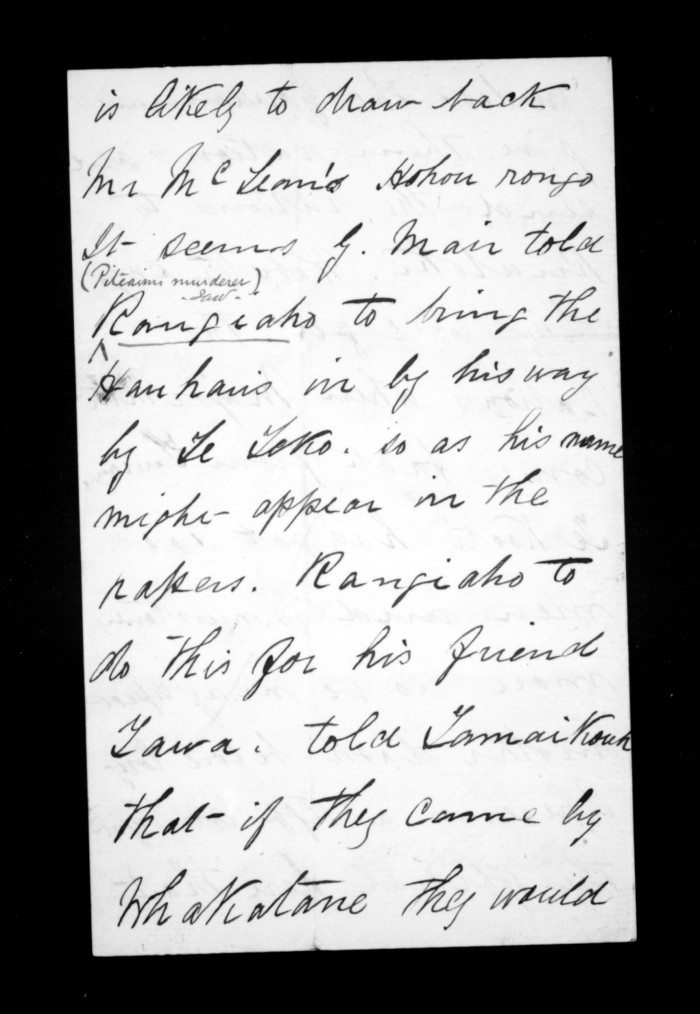 is likely to draw back
Mr McLean's Hohou rongo
It seems G. Mair told
(Pitcairns murderer)
Rangiaho to bring the
Hauhaus in by his way
by Te Teko. so as his name
might appear in the
papers. Rangiaho to
do this for his friend
Tawa. told Tamaikowh
that if they came by
Whakatane they would